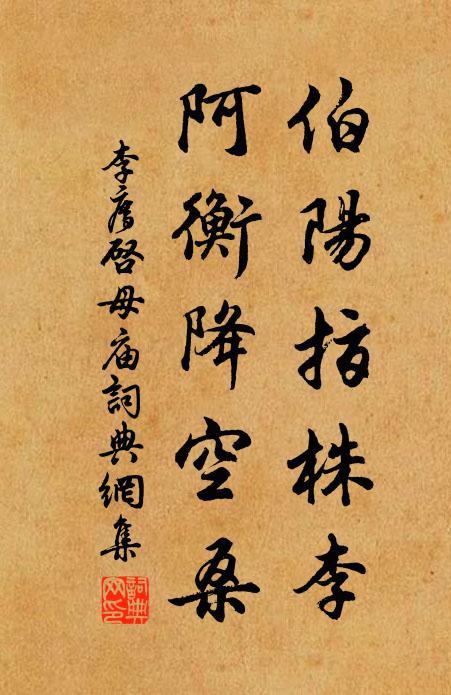 伯陽指株李
阿衡降空桑
李彥啓母庙詞典網集
詞典网印